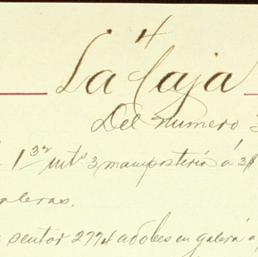 4
La Caja
Del numero 3
1 32 mts 3 mamposteria á 3$
galeras.
sentar 2774 adobes en galera á